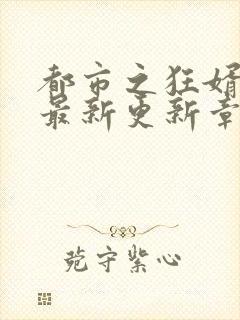 都市之狂婿
最新更新章
苑守紫心